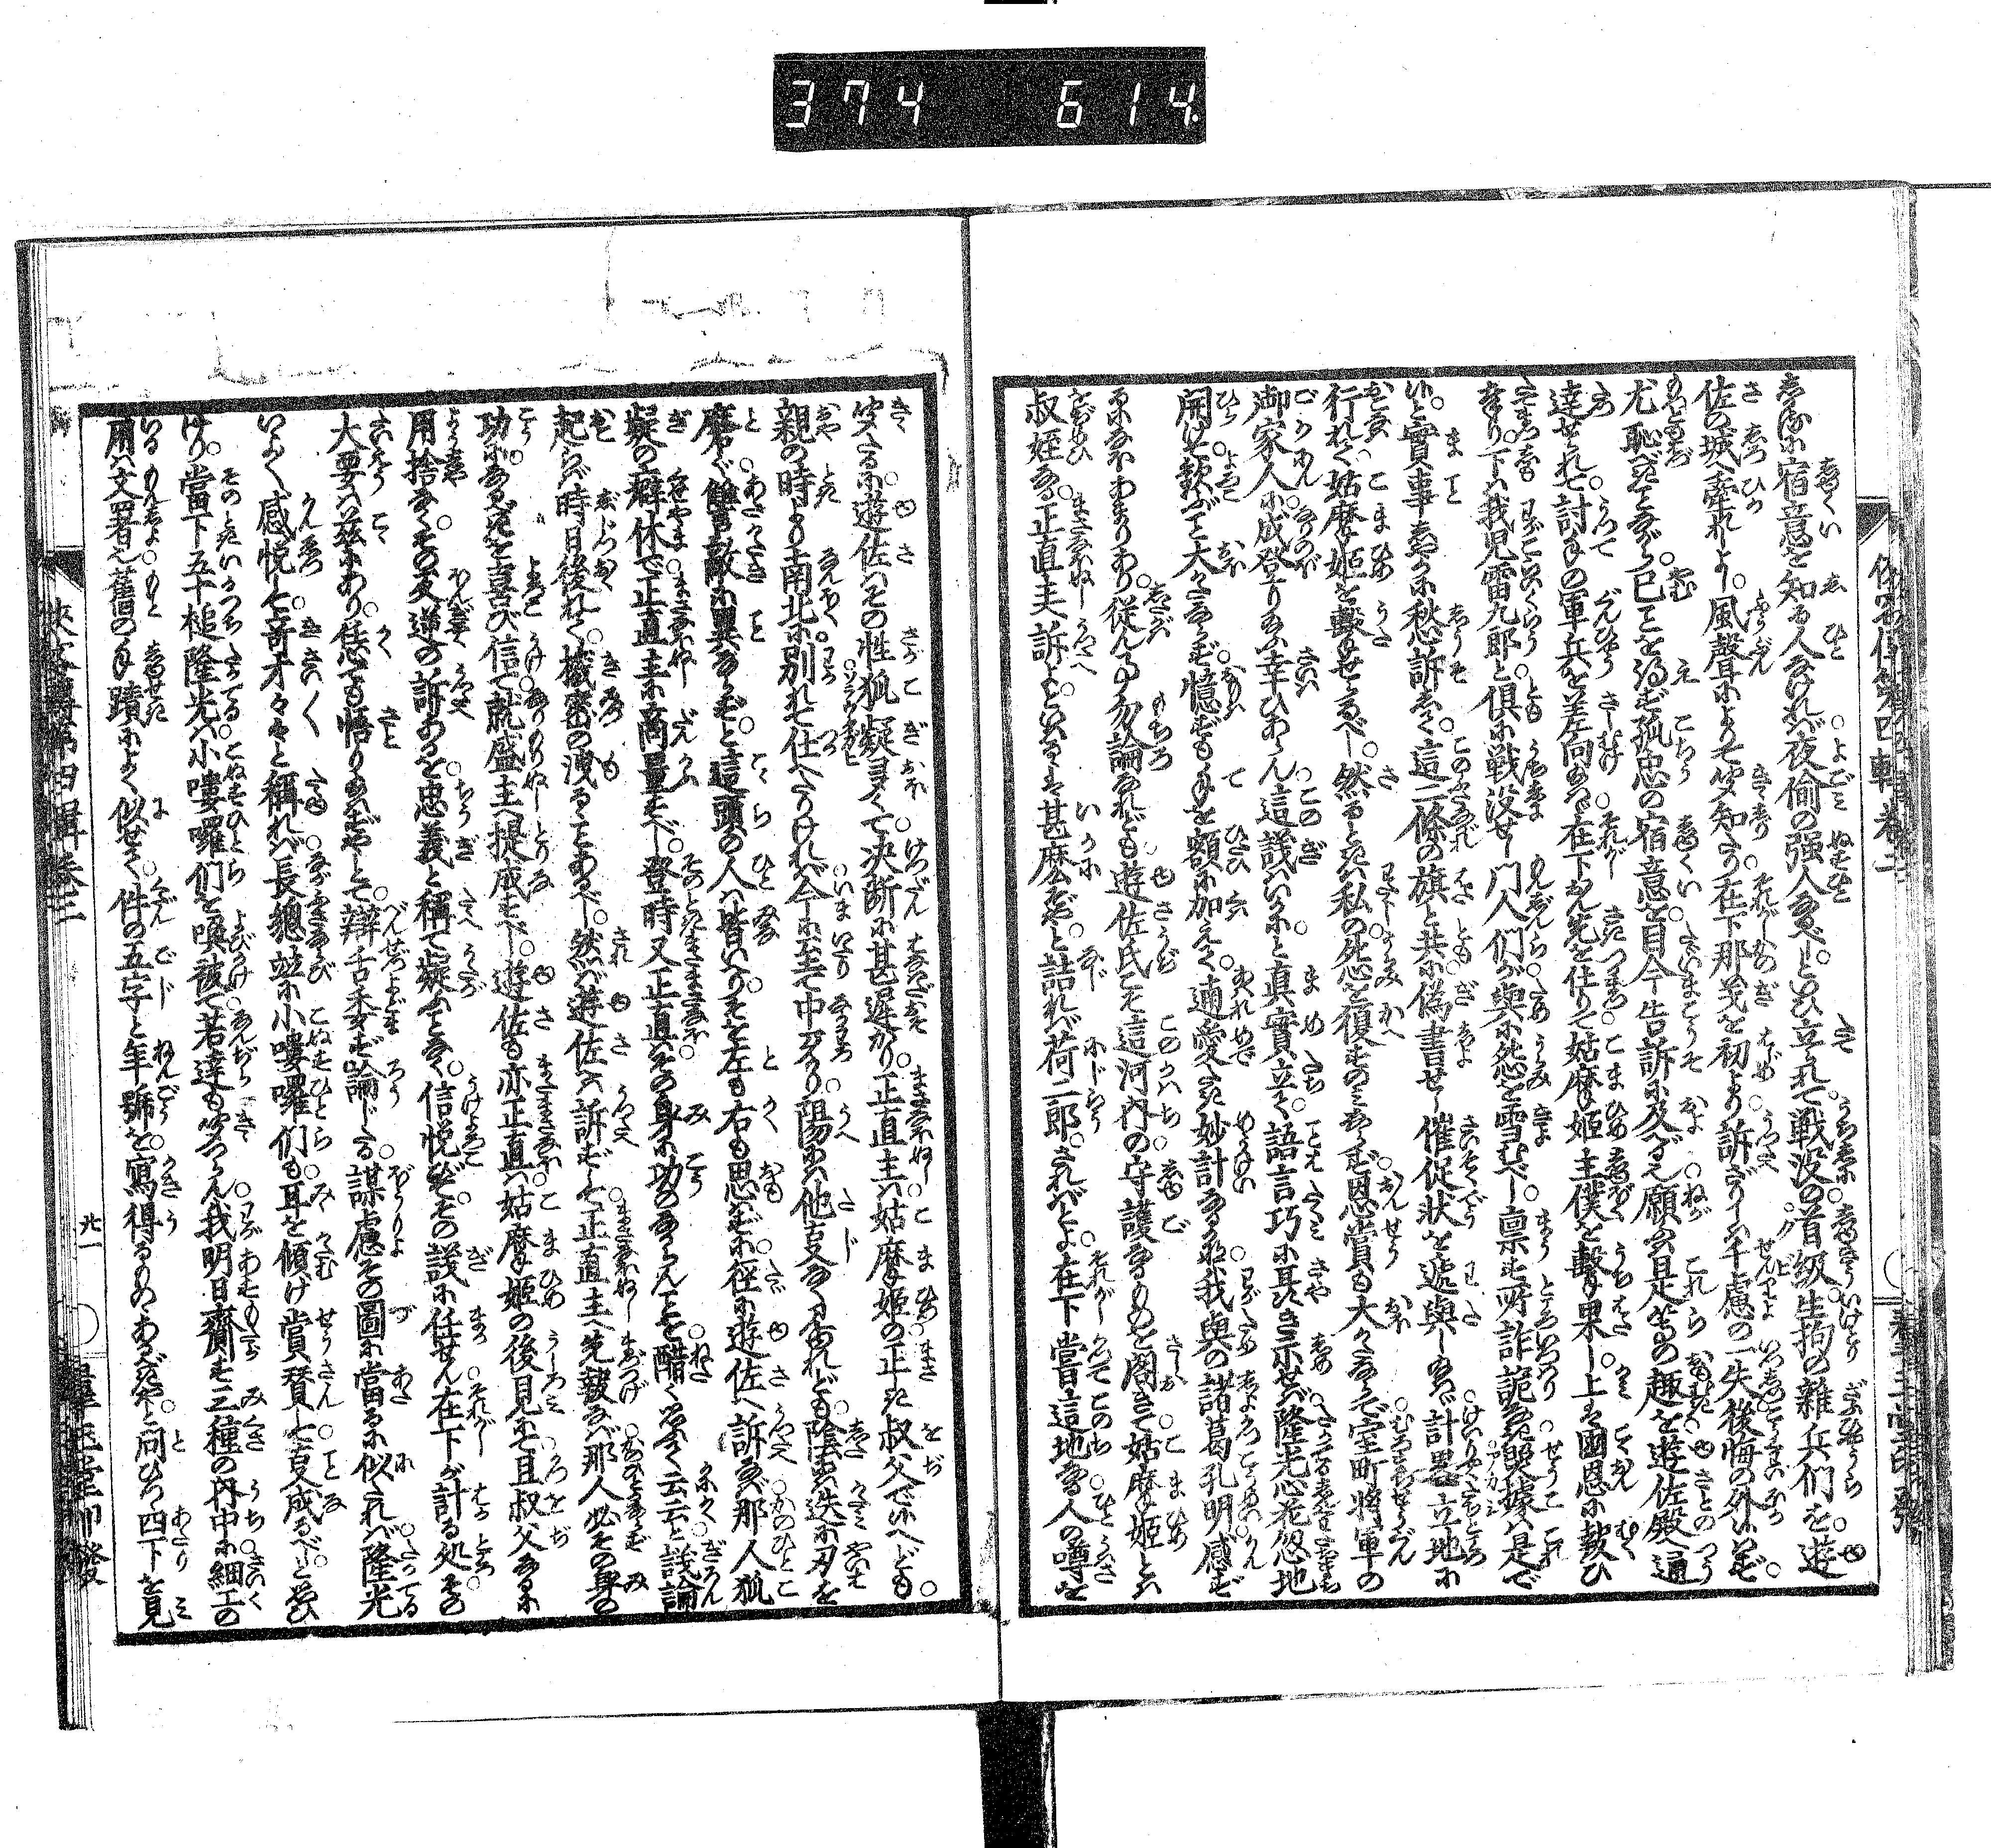 374 614.
志かるに宿意を知る人なければ夜偸の強人なるべしといひ立れて戦没の首級生拘の雑兵们を遊
佐の城へ牽れしよし風聲によりて聞知りつ在下那義を初より訴ざりしハ千慮の一失後悔の外ハいはず
尤恥べきことながら已ことを得ず孤忠の宿意を目今告訴に及べる願ふハ是等の趣を遊佐殿へ通
達せられて討手の軍兵を差向給ハヾ在下先を仕りて姑摩姫主僕を撃果し上ハ國恩に報ひ
まつり下ハ我児雷九郎と倶に戦没せし门人們が與に怨を雪むべし稟す所詐詭なき照據ハ是で
ハと實事しやかに愁訴しつ這二條の旗と共に偽書せし催促状を遞與しなバ計畧立地に
行れて姑摩姫を撃せらるべし然るときハ私の怨を復すのミならず恩賞も大々ならで室町将軍の
御家人に成登りなバ幸ひならん這議ハいかにと真實立て語言巧に具さき示せバ隆光忽地
開け歓ぶこと大々ならず憶ずも手を額に加えて適愛き妙計なるかな我與の諸葛孔明感ず
るになほあまりあり従ん事勿論なれども遊佐氏こそ這河内の守護なるものを閣きて姑摩姫とハ
叔姪なる正直主へ訴よといはるゝハ甚麽ぞやと詰れバ荷二郎さればとよ在下當這地なる人の噂を
聞くに遊佐ハその性狐疑多くて决断に甚遅かり正直主ハ姑摩姫の正き叔父でハいへども
親の時より南北に別れて仕へたりけれバ今に至て中わろかり陽にハ他事なく見ゆれども陰にハ迭に刃を
磨ぐ讐敵に異ならずと這頭の人ハ皆いへりそを左も右も思ハずに径に遊佐へ訴なバ那人狐
疑の癖休で正直主に商量すべし登時又正直その身に功のなからんことを醋く思て云云と説論
起らバ時日後れて機密の洩ることあるべし然バ遊佐へハ訴ずして正直主へ先報なバ那人必その身の
功になるべきを喜び信て就盛主へ提成すべし遊佐も亦正直ハ姑摩姫の後見にて且叔父なるに
用捨なくその反逆の訴あるを忠義と稱て疑ふことなく信悦ばんその議に任せん在下が計る処その
大要ハ茲にあり恁ても悟り給ハずやとて辯舌委ず論じたる謀慮その圖に當るに似たれバ隆光
いよ〳〵感悦して奇才々々と稱れバ長總並に小嘍囉們も耳を傾け賞賛して事成るべしと思ひ
けり當下五十槌隆光ハ小嘍囉們を喚被て若達も聞つらん我明日齎す三種の内中に細工の
用ハ文署也舊の手蹟によく似せて件の五字と年號を寫得るものあらずやと問ひつゝ四下を見
侠客傳第四輯卷三
廿一